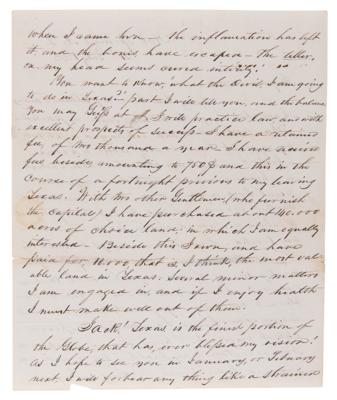 when I came here — the inflamation has left
it, and the bones have escaped — the
on my head seems cured intirely."
"You want to know, 'what the Devil, I am going
to do in Texas?' part I will tell you, and the balance
You may guess at — I will practice law, and with
excellent prospects of success — I have a retained
fee, of two thousand a year — I have received
fees besides amounting to 750$ and this in the
course of a fortnight previous to my leaving
Texas. With two other Gentlemen (who furnish
the capital) I have purchased about 140.000
acres of choice land; in which I am equally
interested — Beside this I own, and have
paid for, 10.000 that is, I think, the most valu-
able land in Texas. Several minor matters
I am engaged in, and if I enjoy health
I must make well out of them.
Jack! Texas is the finest portion of
the Globe, that has, ever blessed my vision!
As I hope to see you in January, or February
next, I will forbear any thing like a strained